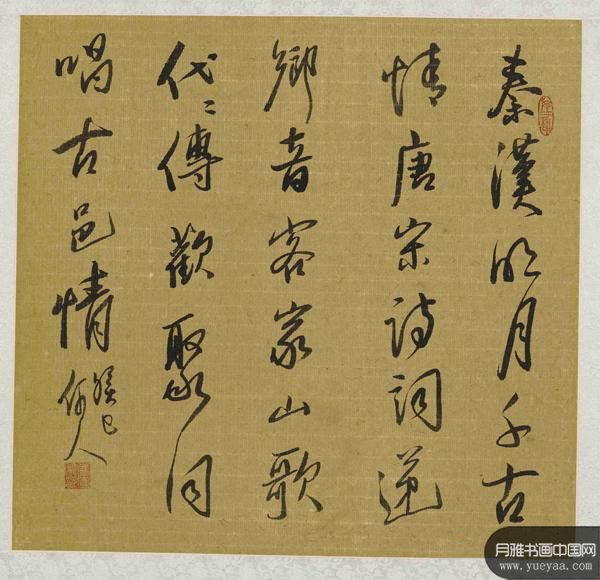 秦漢明月千古
情唐宋詩詞遞
鄉音客家山歌
代代傳歡聚同
唱古邑情
癸巳
何人
月雅书画中国网
www.yueyaa.com